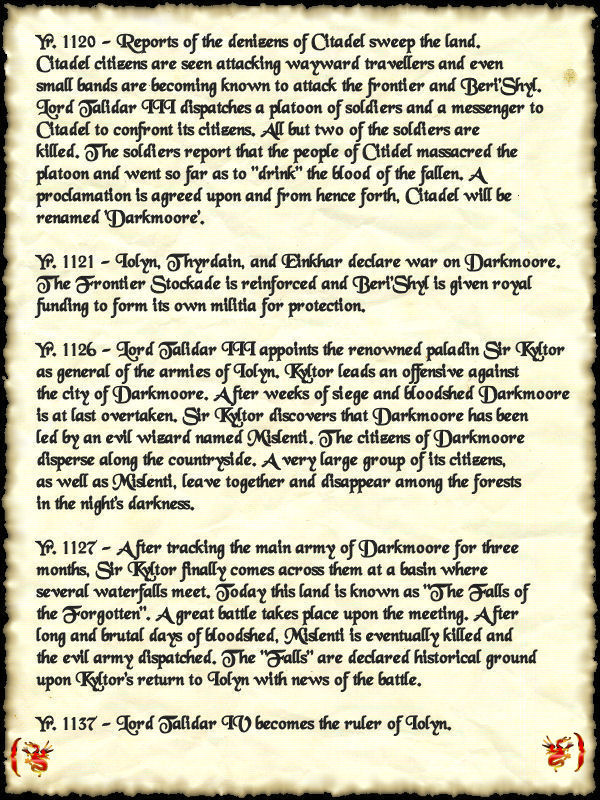 Yr. 1120 - Reports of the denizens of Citadel sweep the land.
Citadel citizens are seen attacking wayward travellers and even
small bands are becoming known to attack the frontier and Beri'Shyl.
Lord Talidar III dispatches a platoon of soldiers and a messenger to
Citadel to confront its citizens. All but two of the soldiers are
killed. The soldiers report that the people of Citidel massacred the
platoon and went so far as to "drink" the blood of the fallen. A
proclamation is agreed upon and from hence forth, Citadel will be
renamed 'Darkmoore'.
Yr. 1121 - Iolyn, Thyrdain, and Einkhar declare war on Darkmoore.
The Frontier Stockade is reinforced and Beri'Shyl is given royal
funding to form its own militia for protection.
Yr. 1126 - Lord Talidar III appoints the renowned paladin Sir Kyltor
as general of the armies of Iolyn. Kyltor leads an offensive against
the city of Darkmoore. After weeks of siege and bloodshed Darkmoore
is at last overtaken. Sir Kyltor discovers that Darkmoore has been
led by an evil wizard named Mislenti. The citizens of Darkmoore
disperse along the countryside. A very large group of its citizens,
as well as Mislenti, leave together and disappear among the forests
in the night's darkness.
Yr. 1127 - After tracking the main army of Darkmoore for three
months, Sir Kyltor finally comes across them at a basin where
several waterfalls meet. Today this land is known as "The Falls of
the Forgotten". A great battle takes place upon the meeting. After
long and brutal days of bloodshed, Mislenti is eventually killed and
the evil army dispatched. The "Falls" are declared historical ground
upon Kyltor's return to Iolyn with news of the battle.
Yr. 1137 - Lord Talidar IV becomes the ruler of Iolyn.